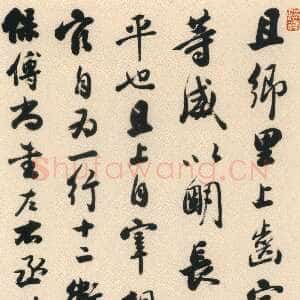 且鄉里上齒宗
等威以明長
平也且上自宰相
官自為一行十二衛
保傅尚書左右丞
Shufawang.CN